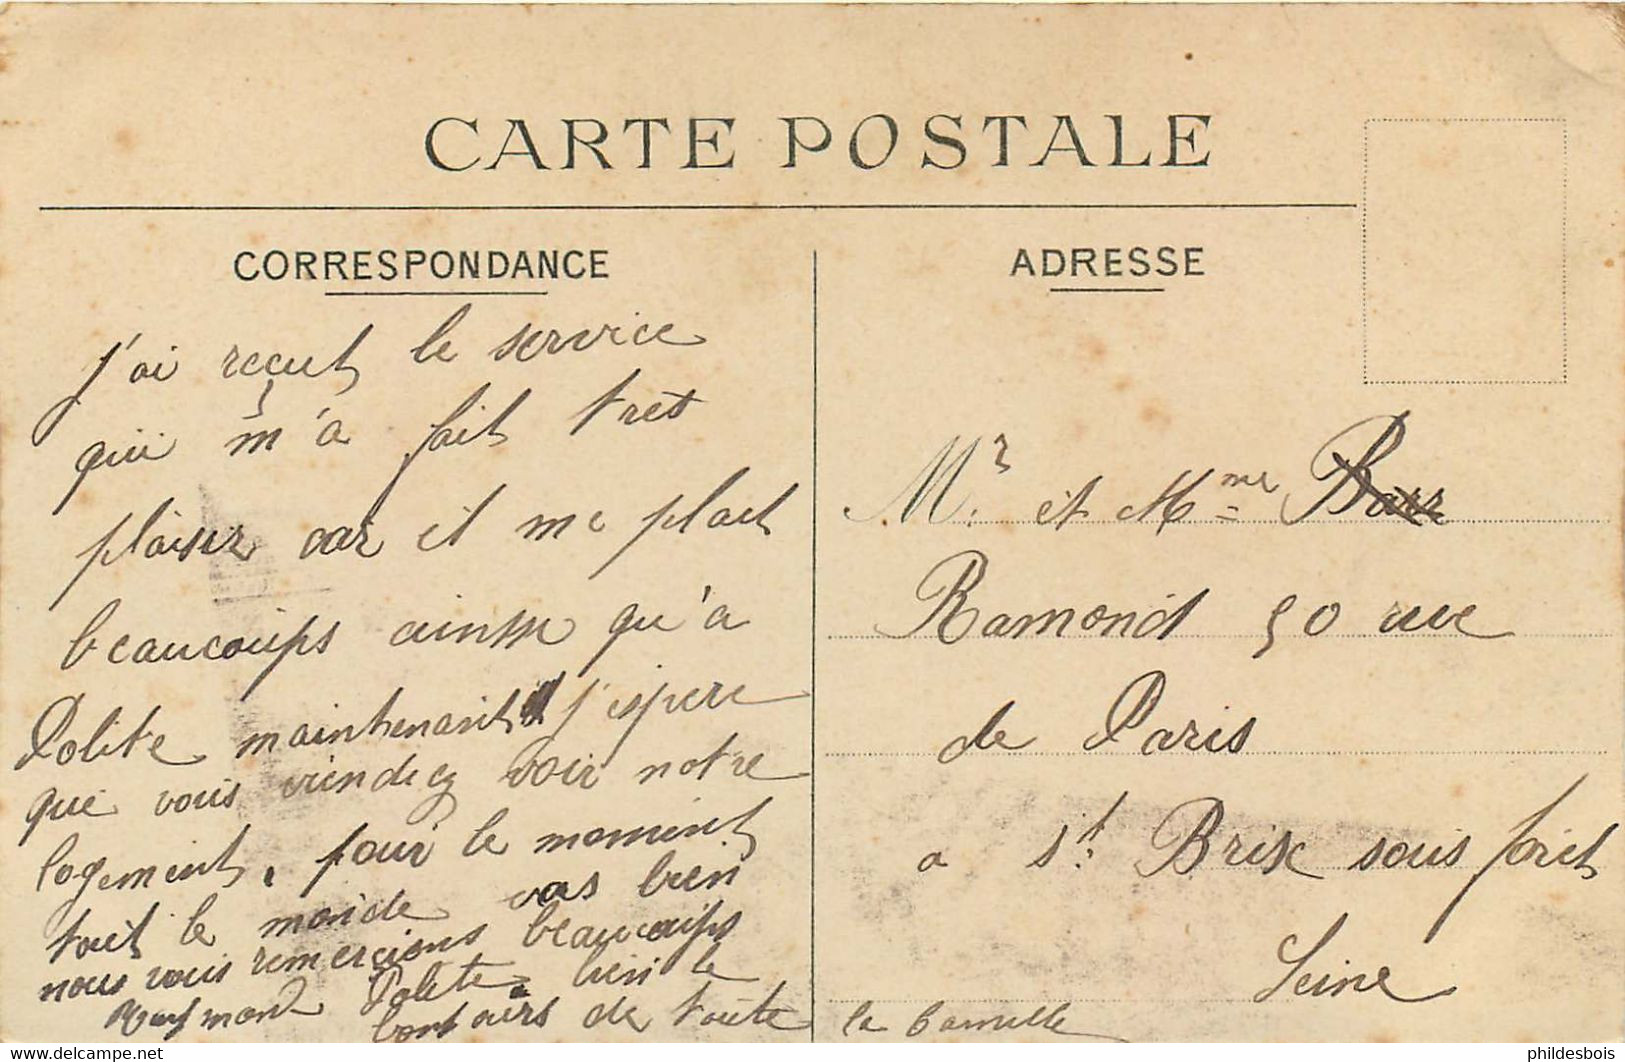 CARTE POSTALE
CORRESPONDANCE
j'ai reçut le service
qui m'a fait tres
plaisir car il me plait
beaucoups ainsi qu'a
Polite maintenant j'espere
que vous viendiez voir notre
logement, pour le moment
tout le monde vas bien
nous vous remercions beaucoups
Raymond Polite bien le
bonjours de toute
la famille
ADRESSE
Mr. et Mme Barr
Ramond 50 rue
de Paris
a St. Brix sous foret
Seine
phildesbois
www.delcampe.net